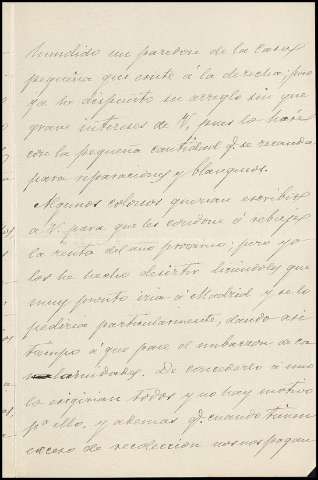 hundido un paredon de la casa
pequeña que existe á la derecha; pero
ya he dispuesto su arreglo sin que
grave intereses de V, pues lo haré
con la pequeña cantidad q. se recauda
para reparaciones y blanqueos.
Algunos colonos querian escribir
á V. para que les condone ó rebaje
la renta del año proximo; pero yo
les he hecho desistir diciendoles que
muy pronto iria á Madrid y se lo
pediria particularmente, dando asi
tiempo á que pase el embarazo de ca
lamidades. De concederlo á uno
lo exigirian todos y no hay motivo
pª ello, y ademas q. cuando tienen
exceso de recoleccion no nos pagan